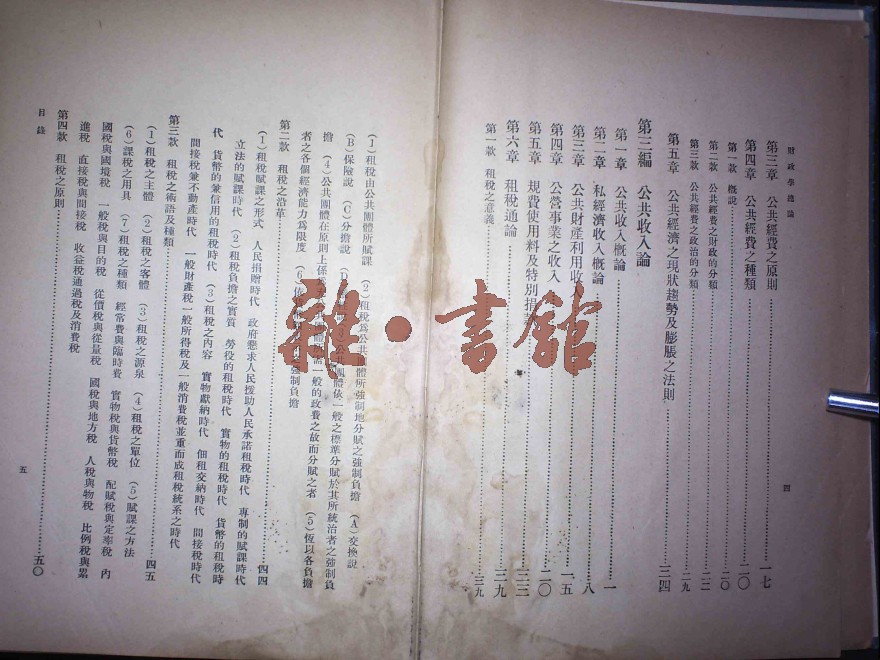 財政學總論
第三章　公共經費之原則……一七
第四章　公共經費之種類……二〇
第一款　概說……二〇
第二款　公共經費之財政的分類……二二
第三款　公共經費之政治的分類……二九
第五章　公共經濟之現狀趨勢及膨脹之法則……三四
第三編　公共收入論
第一章　公共收入概論……一
第二章　私經濟收入概論……八
第三章　公共財產利用收……一五
第四章　公營事業之收入……二〇
第五章　規費使用料及特別捐……二三
第六章　租稅通論……二九
第一款　租稅之意義……三九
四
(1)租稅由公共團體所賦課　(2)租稅爲公共團體所強制地分賦之強制負擔　(A)交換說
(B)保險說　(C)分擔說　公共團體依一般之標準分賦於其所統治者之強制負
擔　(4)公共團體在原則上係　一般的政費之故而分賦之者　(5)恆以各負擔
者之各個經濟能力爲限度　(6)依　強制負擔
第二款　租稅之沿革……四四
(1)租稅賦課之形式　人民捐贈時代　政府懇求人民援助人民承諾租稅時代　專制的賦課時代
立法的賦課時代　(2)租稅負擔之實質　勞役的租稅時代　實物的租稅時代　貨幣的租稅時
代　貨幣的兼信用的租稅時代　(3)租稅之內容　實物獻納時代　佃租交納時代　間接稅時代
間接稅兼不動產時代　一般財產稅一般所得稅及一般消費稅並重而成租稅統系之時代
第三款　租稅之術語及種類……四五
(1)租稅之主體　(2)租稅之客體　(3)租稅之源泉　(4)租稅之單位　(5)賦課之方法
(6)課稅之用具　(7)租稅之種類　經常費與臨時費　實物稅與貨幣稅　配賦稅與定率稅　內
國稅與國境稅　一般稅與目的稅　從價稅與從量稅　國稅與地方稅　人稅與物稅　比例稅與累
進稅　直接稅與間接稅　收益稅通過稅及消費稅
第四款　租稅之原則……五〇
目錄
五
雜·書館